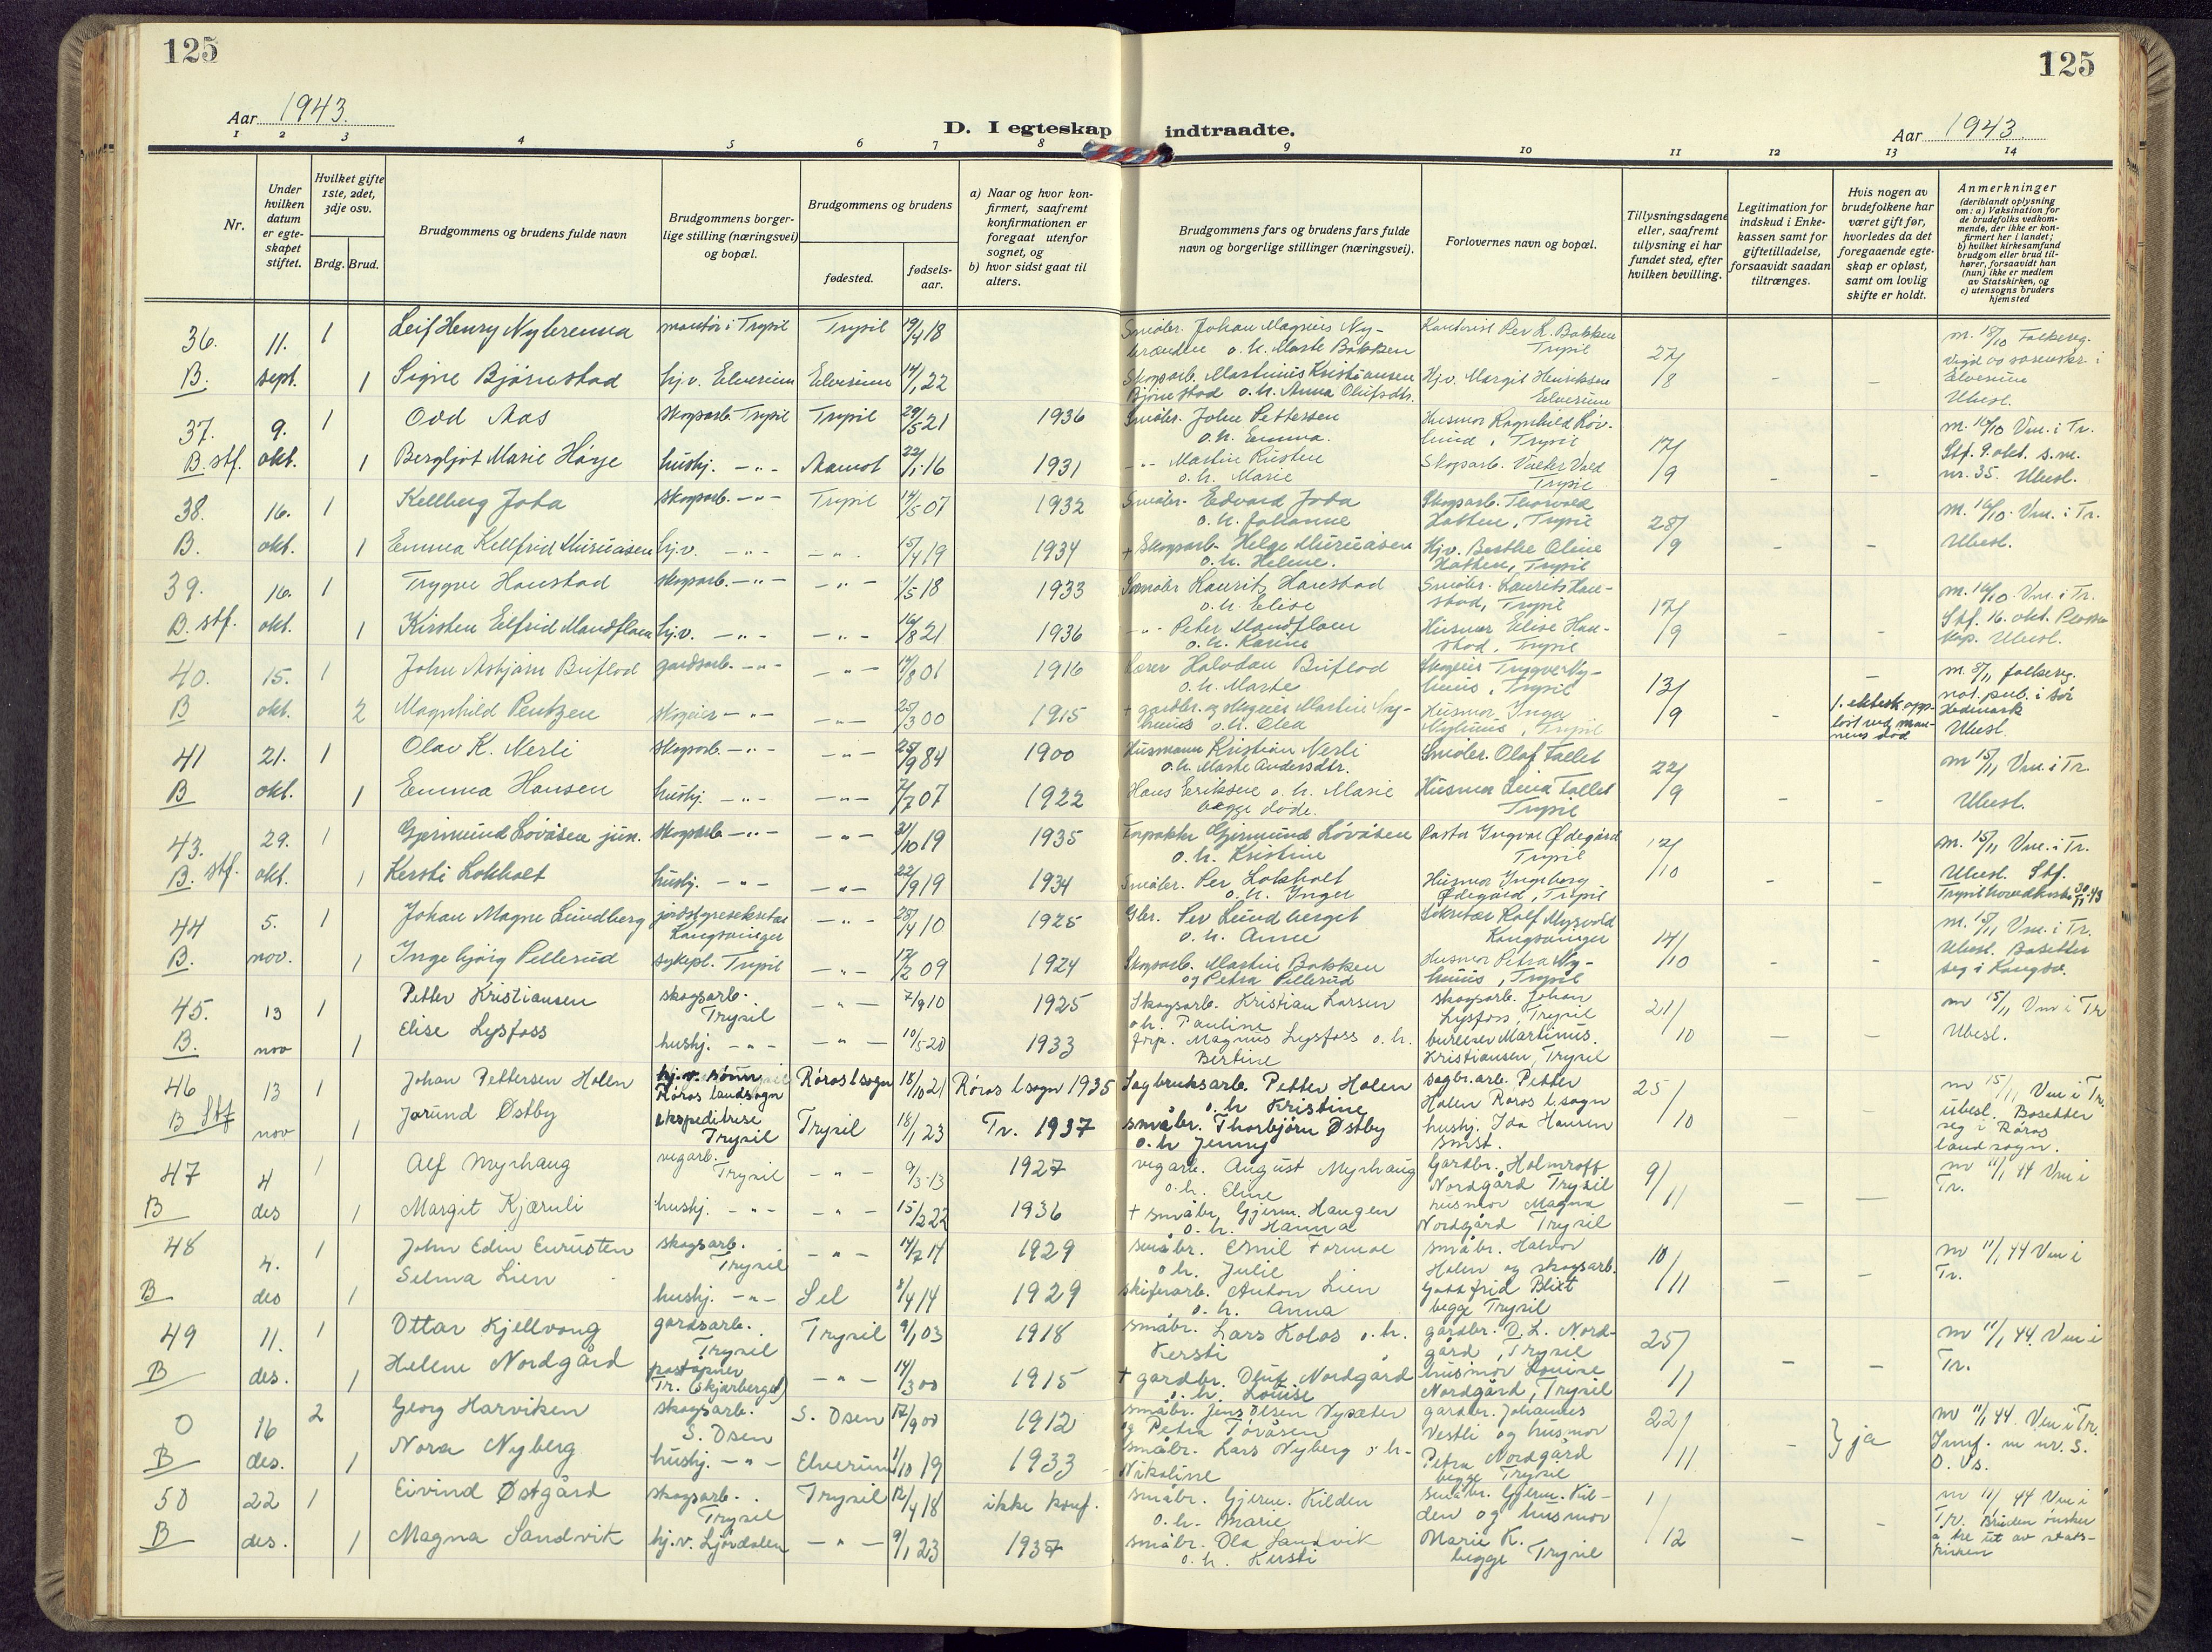 125
125
Aar 1943.
D. I egteskap indtraadte.
Aar 1943.
1 2 3 4 5 6 7 8 9 10 11 12 13 14
Nr.
Under hvilken datum er egte-skapet stiftet.
Hvilket gifte 1ste, 2det, 3dje osv.
Brdg. Brud.
Brudgommens og brudens fulde navn
Brudgommens borger-lige stilling (næringsvei) og bopæl.
Brudgommens og brudens
fødested.
fødsels-aar.
a) Naar og hvor kon-firmert, saafremt konfirmationen er foregaat utenfor sognet, og
b) hvor sidst gaat til alters.
Brudgommens fars og brudens fars fulde navn og borgerlige stillinger (næringsvei).
Forlovernes navn og bopæl.
Tillysningsdagene eller, saafremt tillysning ei har fundet sted, efter hvilken bevilling.
Legitimation for indskud i Enke-kassen samt for giftetilladelse, forsaavidt saadan tiltrænges.
Hvis nogen av brudefolkene har været gift før, hvorledes da det foregaaende egte-skap er opløst, samt om lovlig skifte er holdt.
Anmerkninger (deriblandt oplysning om: a) Vaksination for de brudefolks vedkom-mende, der ikke er kon-firmert her i landet; b) hvilket kirkesamfund brudgom eller brud til-hører, forsaavidt han (hun) ikke er medlem av Statskirken, og c) utensogns bruders hjemsted
36. 11. 1 Leif Henry Nybrenna montør i Trysil Trysil 19/4 18 Småbr. Johan Magnus Ny-brænden o.h. Marte Bakken Per L. Bakken Trysil 27/8 m. 18/10 Folkereg.
B. sept. 1 Signe Bjørnstad hj.v. Elverum Elverum 14/1 22 Skogsarb. Martinus Kristiansen Bjørnstad o.h. Anna Olufsdtr. Hj.v. Margit Henriksen Elverum - - Elverum Ubesl.
37. 9. 1 Odd Aas skogsarb. Trysil Trysil 29/5 21 1936 Småbr. John Pettersen o.h. Emma. Husmor Ragnhild Trysil 17/9 m. 18/10 Vm. i Tr.
B. stf. okt. 1 Bergljot Marie Høye hushj. -"- Aamot 22/1 16 1931 -"- Martin Rusten o.h. Marie Skogsarb. Valter Vold Trysil - - Stf. 9. okt. s.m. nr. 35. Ubesl.
38. 16. 1 Kellberg Joba skogsarb. -"- Trysil 14/5 07 1932 Småbr. Edvard Joba o.h. Johanne Skogsarb. Torvald Hatten, Trysil 28/9 m. 18/10 Vm. i Tr.
B. okt. 1 Emma Kellfrid Muruåsen hj.v. -"- -"- 15/4 19 1934 + Skogsarb. Helge Muruåsen o.h. Helene. Hj.v. Berthe Oline Hatten, Trysil - - Ubesl.
39. 16. 1 Trygve Haustad skogsarb. -"- -"- 1/5 18 1933 Småbr Laurits Haustad o.h. Elise Småbr. Laurits Hau-stad, Trysil 17/9 m. 18/10 Vm. i Tr.
B. stf. okt. 1 Kirsten Eilfrid Mandfloen hj.v. -"- -"- 16/8 21 1936 -"- Peter Mandfloen o.h. Karine Husmor Elise Hau-stad, Trysil - - Stf. 16. okt. Ubesl.
40. 15. 1 John Asbjørn Buflod gardsarb. -"- -"- 14/8 01 1916 Lærer Halvdan Buflod o.h. Marte Skogeier Trygve Ny-huus, Trysil 13/9 - m. 8/11 folkereg.
B okt. 2 Magnhild Pentzen skogeier -"- -"- 25/3 00 1915 + gardbr. og skogeier Martin Ny-huus o.h. Olea Husmor Inga Nyhuus, Trysil - 1. ektesk. opp-løst ved man-nens død not. pub. i Sør Hedmark Ubesl.
41 21. 1 Olav K. Nerli skogsarb. -"- -"- 25/9 84 1900 Husmann Kristian Nerli o.h. Marte Andersdtr. Småbr. Olaf Fallet 22/9 m 15/11 Vm. i Tr.
B okt. 1 Emma Hansen hushj. -"- -"- 7/7 07 1922 Hans Eriksen o.h. Marie begge døde. Husmor Lina Fallet Trysil - - Ubesl.
43. 29. 1 Gjermund Løvåsen jun. skogsarb -"- -"- 31/10 19 1935 Forpakter Gjermund Løvåsen o.h. Kristine Pastor Ingvar Ødegård Trysil 12/10 m. 15/11 Vm. i Tr.
B. stf. okt. 1 Kersti Lokholt hushj. -"- -"- 22/9 19 1934 Småbr. Per Lokholt o.h. Inger Husmor Ingeborg Ødegård, Trysil - - Ubesl. Stf. Trysil hovedkirke 30/11 43
44 5. 1 Johan Magne Lundberg jordstyresekretær Kongsvinger -"- 28/4 10 1925 Gbr. Per Lundberget o.h. Anne Sekretær Rolf Myrvold Kongsvinger 14/10 m. 15/11 Vm. i Tr.
B. nov. 1 Ingebjørg Pellerud sykepl. Trysil -"- 12/2 09 1924 Skogsarb. Martin Bakken og Petra Pellerud Husmor Petra Ny-huus, Trysil - - Ubesl. Bosetter seg i Kongsv.
45. 13 1 Petter Kristiansen skogsarb. Trysil -"- 7/9 10 1925 Skogsarb. Kristian Larsen o.h. Pauline skogsarb. Johan Lysfoss, Trysil 21/10 m 15/11 Vm i Tr
B. nov 1 Elise Lysfoss hushj. -"- -"- 10/5 20 1933 forp. Magnus Lysfoss o.h. Bertine bureiser Martinus Kristiansen, Trysil - - Ubesl.
46 13 1 Johan Pettersen Holen Røros landsogn Røros l.sogn 18/10 21 Røros l.sogn 1935 Sagbruksarb. Petter Holen o.h Kristine sagbr.arb. Petter Holen Røros l.sogn 25/10 m 15/11 Vm i Tr.
B Stf nov 1 Jorund Østby ekspeditrise Trysil Trysil 18/1 23 Tr. 1937 småbr. Thorbjørn Østby o.h Jenny hushj. Ida Hansen smst. - ubesl. Bosetter seg i Røros landsogn.
47 4 1 Alf Myrhaug vegarb. Trysil -"- 9/3 13 1927 vegarb. August Myrhaug o.h. Eline Gardbr. Holmroff Nordgård Trysil 9/11 m 11/1 44 Vm i Tr.
B des 1 Margit Kjærnli hushj. -"- -"- 15/2 22 1936 + småbr. Gjerm. Haugen o.h. Hanna husmor Magna Nordgård Trysil - -
48 4. 1 John Edin Enrusten skogsarb. Trysil -"- 14/7 14 1929 småbr. Emil Formoe o.h. Julie småbr. Halvor Holen og skogsarb. 10/11 m 11/1 44 Vm i Tr.
B des 1 Selma Lien hushj. -"- Sel 8/4 14 1929 skiferarb. Anton Lien o.h. Anna Gottfrid Blixt begge Trysil - -
49 11. 1 Ottar Kjellvong gardsarb. Trysil Trysil 9/1 03 1918 småbr. Lars Kolos o.h. Kersti gardbr. O.L. Nord-gård, Trysil 25/11 m 11/1 44. Vm i Tr.
B des. 1 Helene Nordgård poståpner Tr. (Skjærberget) -"- 14/3 00 1915 + gardbr. Oluf Nordgård o.h. Louise husmor Louise Nordgård, Trysil - -
0 16 2 Georg Harviken skogsarb. S. Osen S. Osen 17/9 00 1912 småbr. Jens Olsen Vysæter og Petra Tøråsen gardbr. Johannes Vestli og husmor 22/11 } ja m 11/1 44. Vm i Tr.
B des. 1 Nora Nyberg hushj. -"- Elverum 1/10 19 1933 småbr. Lars Nyberg o.h. Nikoline Petra Nordgård begge Trysil - Innf. m nr. S. O. Vs.
50 22 1 Eivind Østgård skogsarb. Trysil Trysil 12/4 18 ikke konf. småbr. Gjerm. Kilden o.h. Marie småbr. Gjerm. Kil-den og husmor 1/12 m 11/1 44 Vm i Tr. Bruden ønsker
B des. 1 Magna Sandvik hj.v. Ljørdalen -"- 9/1 23 1937 småbr. Ola Sandvik o.h. Kersti Marie K. begge Trysil - - å tre ut av stats-kirken